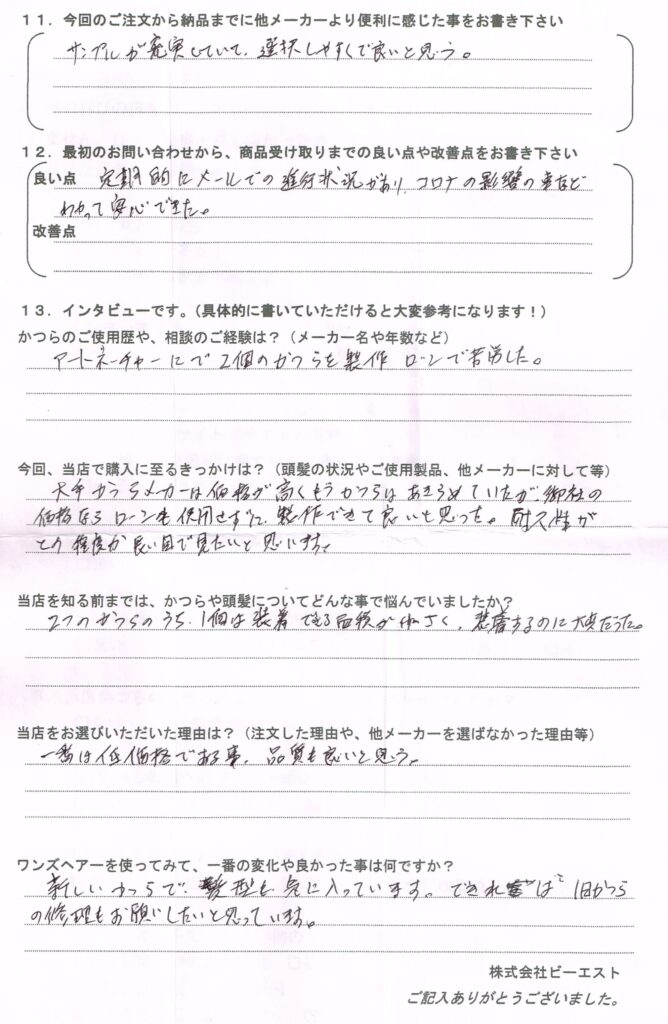 １１．今回のご注文から納品までに他メーカーより便利に感じた事をお書き下さい
サンプルが充実していて、選択しやすくて良いと思う。
１２．最初のお問い合わせから、商品受け取りまでの良い点や改善点をお書き下さい
良い点 定期的にメールでの進行状況があり、コロナの影響の事など
わかって安心できた。
改善点
１３．インタビューです。（具体的に書いていただけると大変参考になります！）
かつらのご使用歴や、相談のご経験は？（メーカー名や年数など）
アートネーチャーにて２個のかつらを製作 ローンで苦労した。
今回、当店で購入に至るきっかけは？（頭髪の状況やご使用製品、他メーカーに対して等）
大手かつらメーカーは価格が高くもうかつらはあきらめていたが、御社の
価格ならローンも使用せずに、製作できて良いも思った。耐久性が
どの程度か長い目で見たいと思います。
当店を知る前までは、かつらや頭髪についてどんな事で悩んでいましたか？
２つのかつらのうち、１個は装着できる面積が小さく、装着するのに大変だった。
当店をお選びいただいた理由は？（注文した理由や、他メーカーを選ばなかった理由等）
一番は低価格である事、品質も良いと思う。
ワンズヘアーを使ってみて、一番の変化や良かった事は何ですか？
新しいかつらで、髪型も気に入っています。できれば、旧かつら
の修理もお願いしたいと思っています。
株式会社ビーエスト
ご記入ありがとうございました。